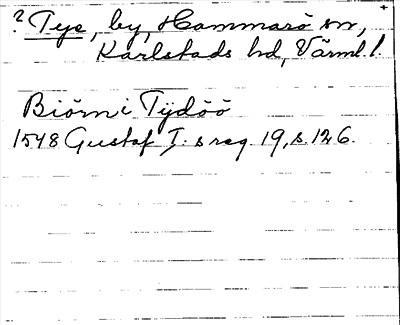 ? Tye, by, Hammarö sn,
Karlstads hd, Värml. l.
Biörn i Tydöö
1548 Gustaf I:s reg 19, s. 126.